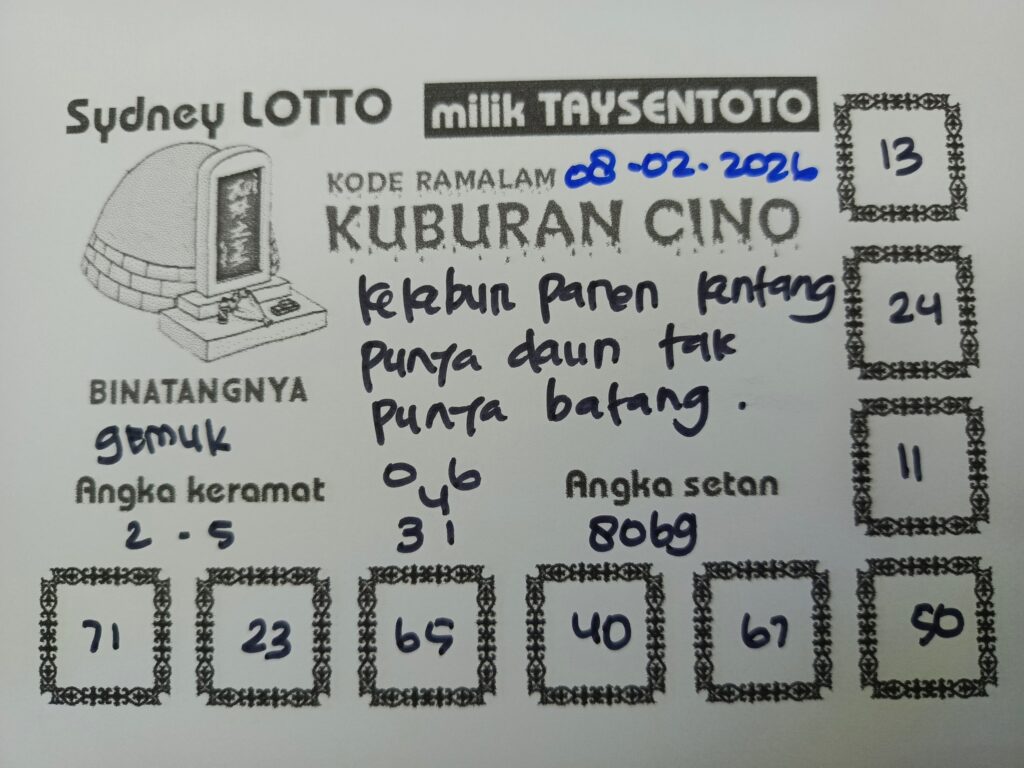 Sydney LOTTO
milik TAYSENTOTO
KODE RAMALAM 08-02-2026
KUBURAN CINO
kelabun panen kentang
punya daun tak
punya batang.
BINATANGNYA
gemuk
Angka keramat
2 - 5
0 4 6
3 1
Angka setan
8069
13
24
11
71 23 65 40 67 50